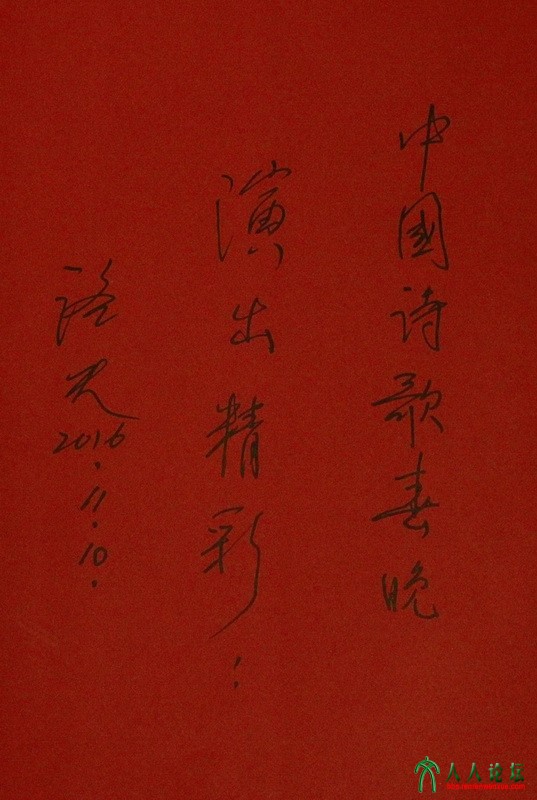 中國诗歌春晚
演出精彩!
2016.11.10.
人人论坛